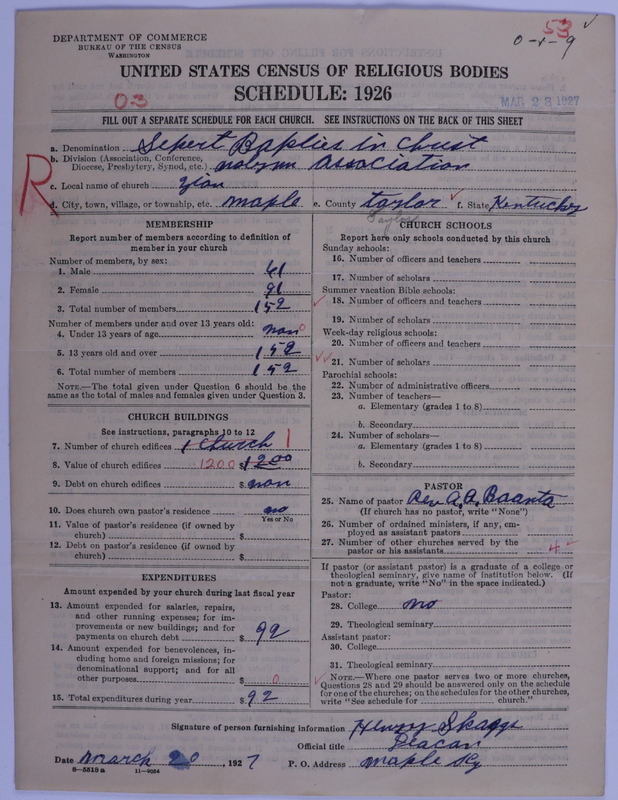 DEPARTMENT OF COMMERCE
BUREAU OF THE CENSUS
WASHINGTON
53
0-1-9
UNITED STATES CENSUS OF RELIGIOUS BODIES
SCHEDULE: 1926
03
MAR 28 1927
FILL OUT A SEPARATE SCHEDULE FOR EACH CHURCH. SEE INSTRUCTIONS ON THE BACK OF THIS SHEET
R
a. Denomination Sepert Bapties in Christ
b. Division (Association, Conference, Diocese, Presbytery, Synod, etc.) nolynn association
c. Local name of church Zion
d. City, town, village, or township, etc. maple e. County taylor f. State Kentucky
Taylor
MEMBERSHIP
Report number of members according to definition of
member in your church
Number of members, by sex:
1. Male 61
2. Female 91
3. Total number of members 152
Number of members under and over 13 years old:
4. Under 13 years of age non 0
5. 13 years old and over 152
6. Total number of members 152
NOTE.—The total given under Question 6 should be the
same as the total of males and females given under Question 3.
CHURCH BUILDINGS
See instructions, paragraphs 10 to 12
7. Number of church edifices 1 church 1
8. Value of church edifices 1200 $1200
9. Debt on church edifices $ non
10. Does church own pastor's residence no
Yes or No
11. Value of pastor's residence (if owned by
church) $
12. Debt on pastor's residence (if owned by
church) $
EXPENDITURES
Amount expended by your church during last fiscal year
13. Amount expended for salaries, repairs,
and other running expenses; for im-
provements or new buildings; and for
payments on church debt $ 92
14. Amount expended for benevolences, in-
cluding home and foreign missions; for
denominational support; and for all
other purposes $ 0
15. Total expenditures during year $ 92
CHURCH SCHOOLS
Report here only schools conducted by this church
Sunday schools:
16. Number of officers and teachers
17. Number of scholars
Summer vacation Bible schools:
18. Number of officers and teachers
19. Number of scholars
Week-day religious schools:
20. Number of officers and teachers
21. Number of scholars
Parochial schools:
22. Number of administrative officers
23. Number of teachers—
a. Elementary (grades 1 to 8)
b. Secondary
24. Number of scholars—
a. Elementary (grades 1 to 8)
b. Secondary
PASTOR
25. Name of pastor Rev. A. A. Baanta
(If church has no pastor, write "None")
26. Number of ordained ministers, if any, em-
ployed as assistant pastors
27. Number of other churches served by the
pastor or his assistants 4
If pastor (or assistant pastor) is a graduate of a college or
theological seminary, give name of institution below. (If
not a graduate, write "No" in the space indicated.)
Pastor:
28. College no
29. Theological seminary
Assistant pastor:
30. College
31. Theological seminary
NOTE.—Where one pastor serves two or more churches,
Questions 28 and 29 should be answered only on the schedule
for one of the churches; on the schedules for the other churches,
write "See schedule for church."
Signature of person furnishing information Henry Skaggs
Official title Deacan
Date march 20, 1927 P. O. Address maple Ky
8—5518 a 11—9064